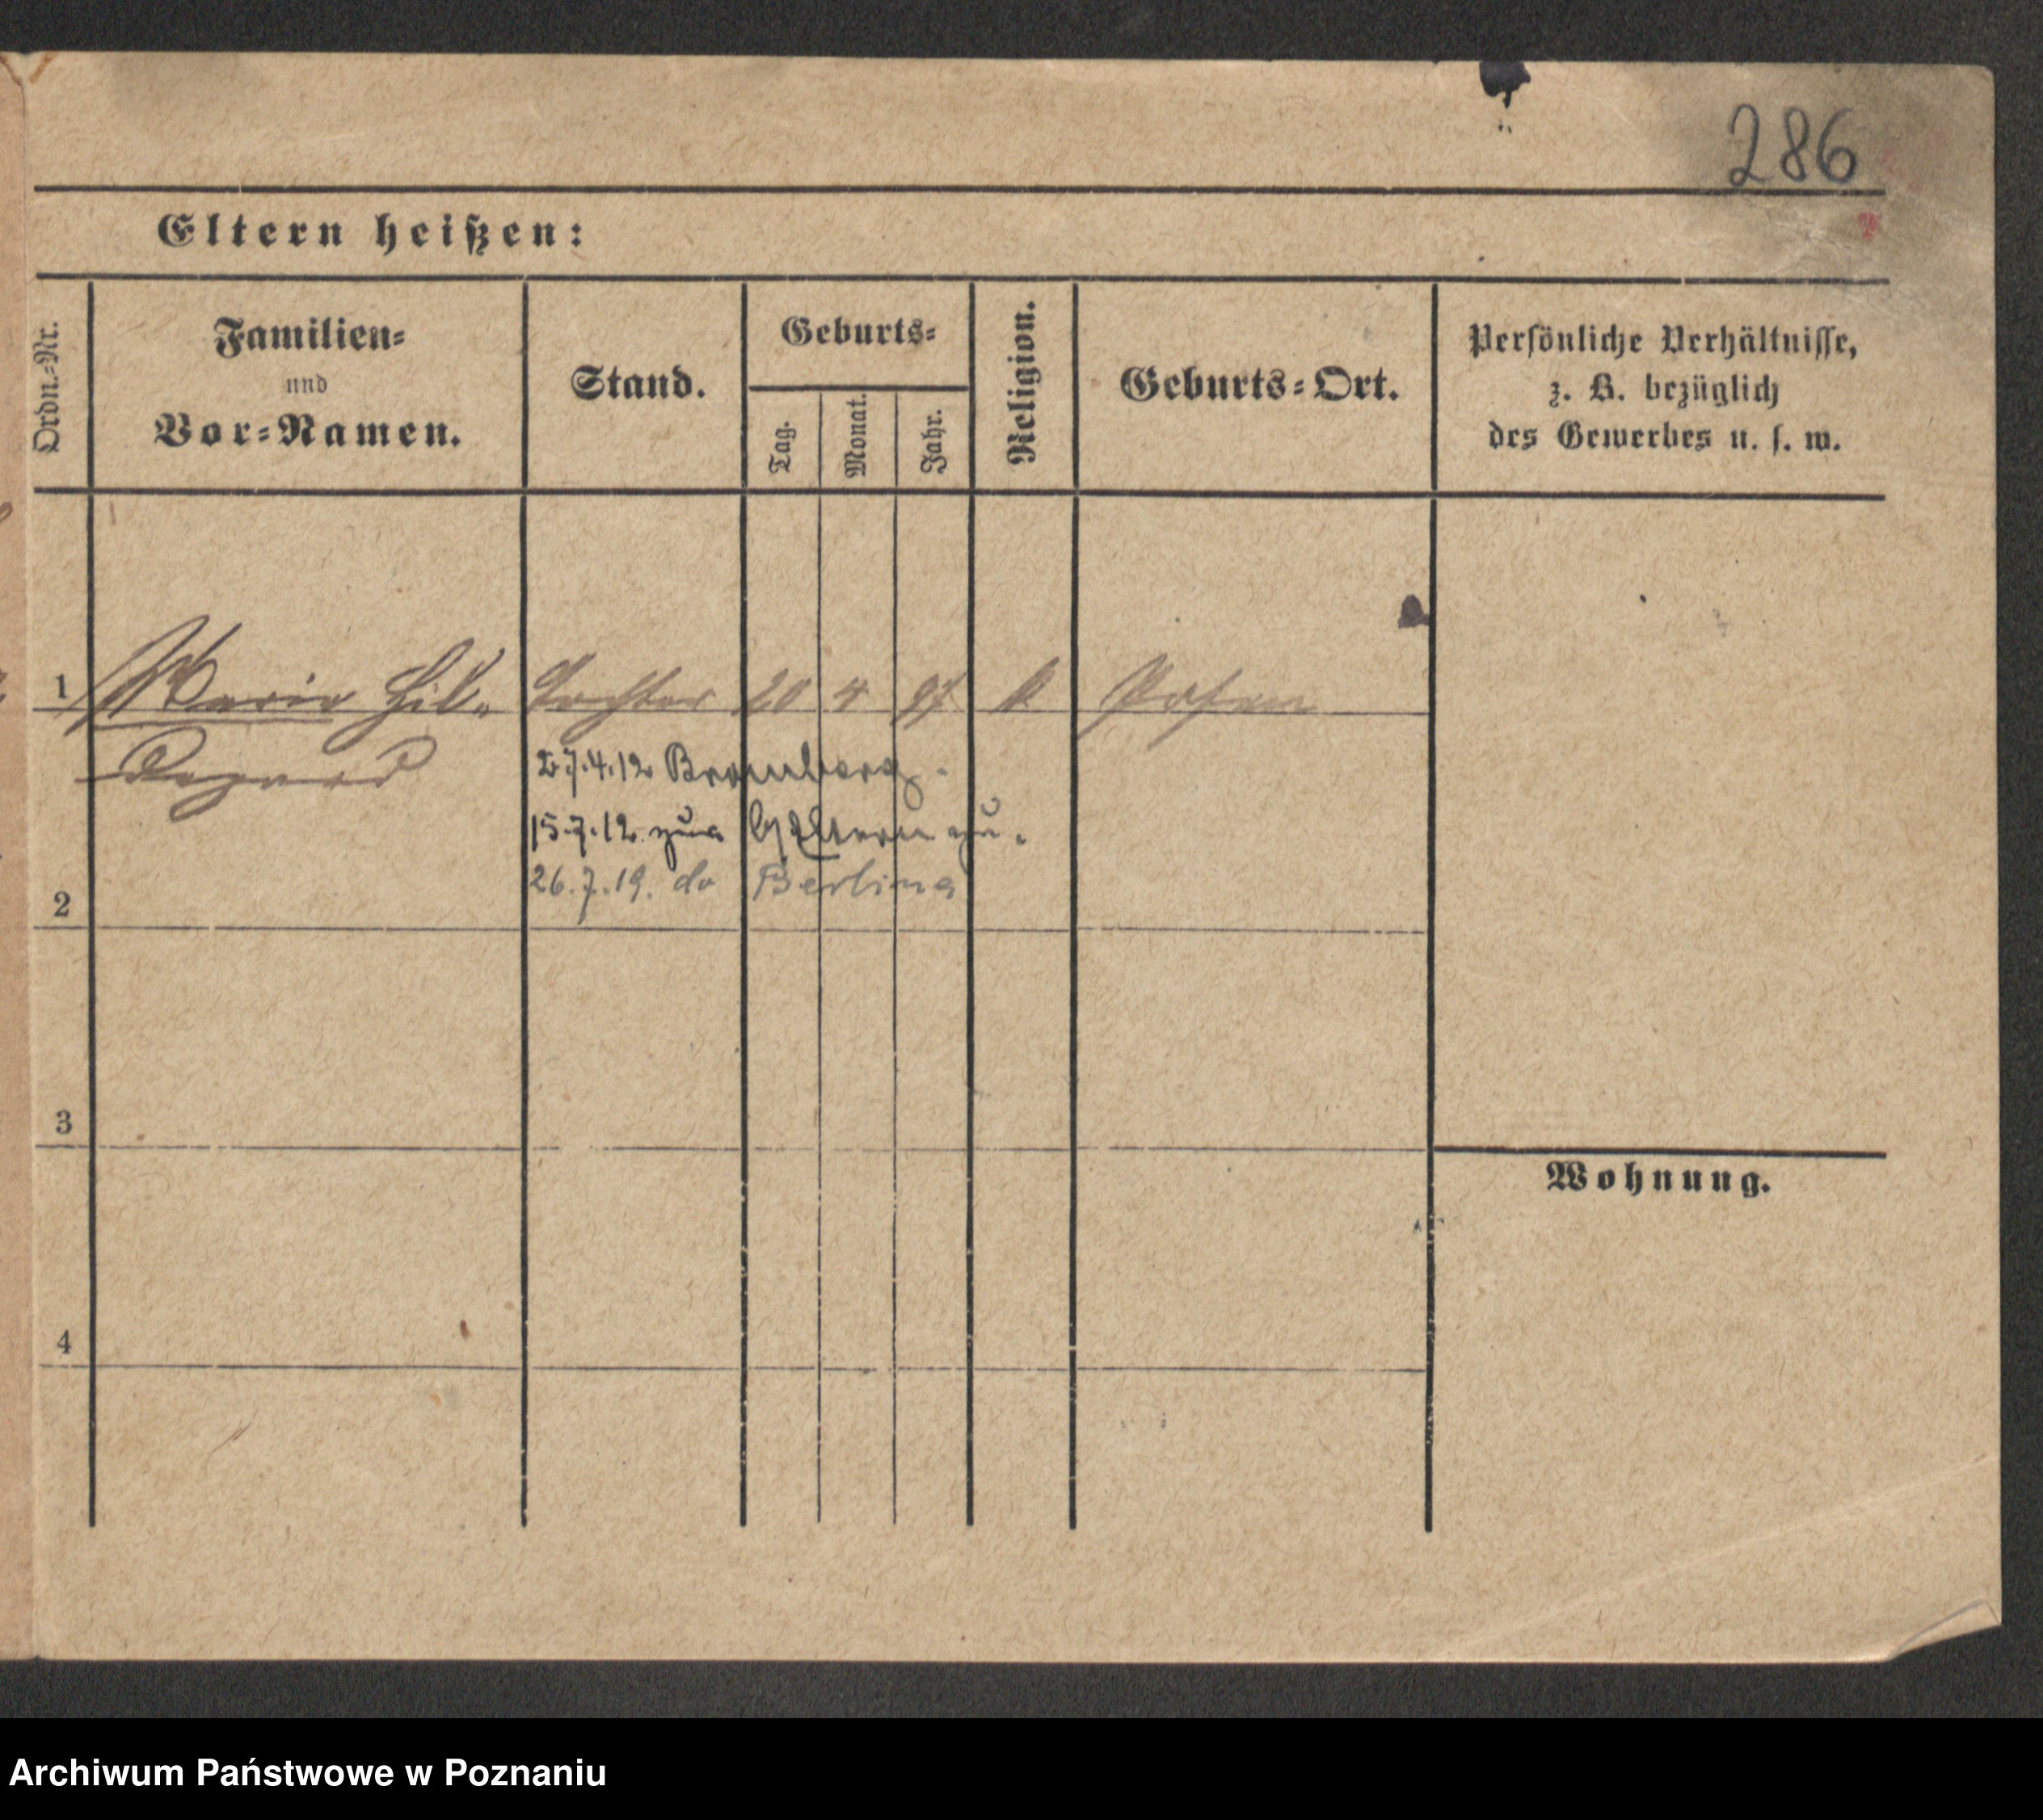 286
Eltern heißen:
Ordn.-Nr.
Familien-
und
Vor-Namen.
Stand.
Geburts-
Tag.
Monat.
Jahr.
Religion.
Geburts-Ort.
Persönliche Verhältnisse,
z. B. bezüglich
des Gewerbes u. s. w.
1 Maria Hil- Tochter 20 4 97 k Posen
degard
27.4.12 Bromberg.
15.7.12 zu.
26.7.19. do Berlina
2
3
Wohnung.
4
Archiwum Państwowe w Poznaniu